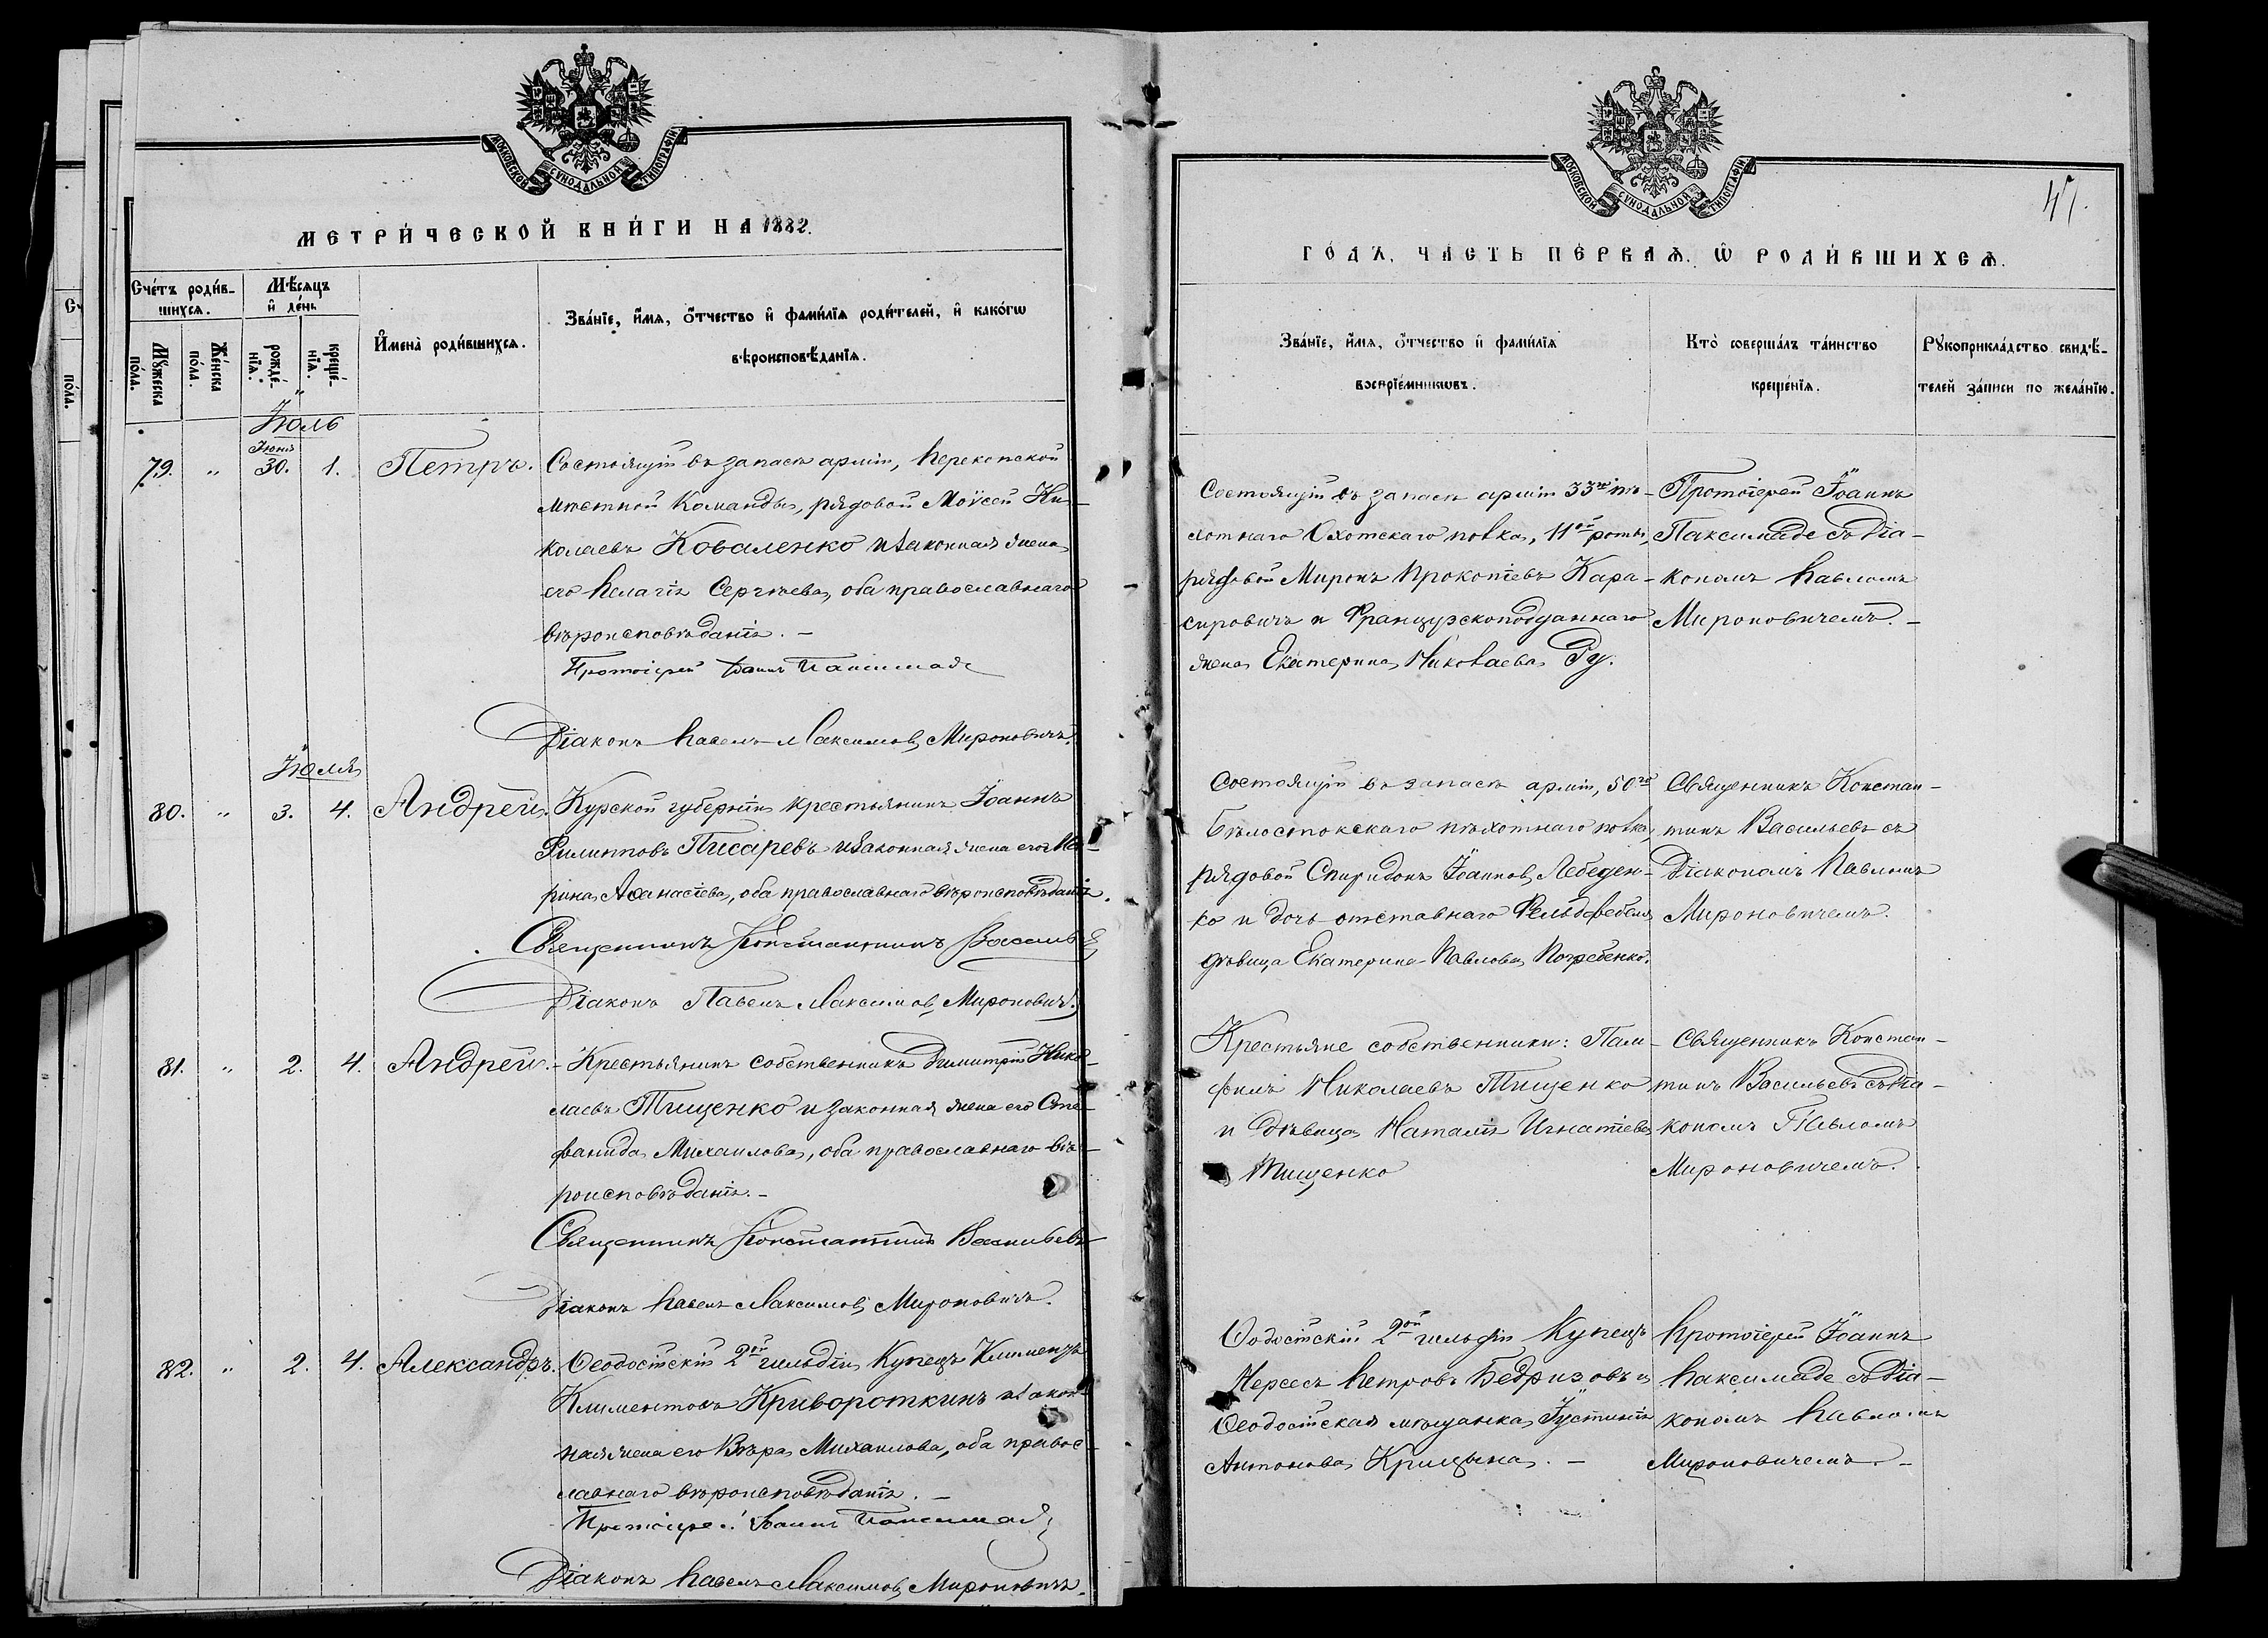 МОСКОВСКОЙ СѴНОДАЛЬНОЙ ТИПОГРАФІИ
МЕТРИ́ЧЕСКОЙ КНИ́ГИ НА 1882.
Сче́тъ роди́в-
шихсѧ.
Мѣ́сѧцъ
и҆ де́нь
Мꙋ́жеска
по́ла.
Же́нска
по́ла.
рожде́-
нїѧ.
креще́-
нїѧ.
И҆мена̀ роди́вшихсѧ.
Зва́нїе, и҆́мѧ, ѻ҆́тчество и҆ фами́лїѧ роди́телей, и҆ како́гѡ
вѣроисповѣ́данїѧ.
Іюль
Іюня
79. " 30. 1. Петръ. Состоящій въ запасѣ арміи, Перекопской
мѣстной Команды, рядовой Моѵсей Ни-
колаевъ Коваленко и законная жена
его Пелагія Сергѣева, оба православнаго
вѣроисповѣданія. –
Протоіерей Іоаннъ Паксимаде
Діаконъ Павелъ Максимовъ Мироновичъ.
Іюля
80. " 3. 4. Андрей. Курской губерніи крестьянинъ Іоаннъ
Филипповъ Писаревъ и законная жена его Ма-
рина Аѳанасіева, оба православнаго вѣроисповѣданія.
Священникъ Константинъ Васильевъ
Діаконъ Павелъ Максимовъ Мироновичъ.
81. " 2. 4. Андрей. – Крестьянинъ собственникъ Димитрій Нико-
лаевъ Тищенко и законная жена его Сте-
фанида Михаилова, оба православнаго вѣ-
роисповѣданія. –
Священникъ Константинъ Васильевъ
Діаконъ Павелъ Максимовъ Мироновичъ.
82. " 2. 4. Александръ. Ѳеодосійскій 2ой гильдіи Купецъ Климентъ
Климентовъ Кривороткинъ и закон-
ная жена его Вѣра Михаилова, оба правос-
лавнаго вѣроисповѣданія. –
Протоіерей Іоаннъ Паксимаде
Діаконъ Павелъ Максимовъ Мироновичъ.
МОСКОВСКОЙ СѴНОДАЛЬНОЙ ТИПОГРАФІИ
47.
ГО́ДЪ, ЧА́СТЬ ПЕ́РВАѦ, Ѡ҆ РОДИ́ВШИХСѦ.
Зва́нїе, и҆́мѧ, ѻ҆́тчество и҆ фами́лїѧ
воспрїе́мникѡвъ.
Кто̀ соверша́лъ та́инство
креще́нїѧ.
Рꙋкоприкла́дство свидѣ́-
телей за́писи по жела́нїю.
Состоящій въ запасѣ арміи 33го пѣ-
хотнаго Охотскаго полка, 11ой роты,
рядовой Миронъ Прокопіевъ Кара-
сировичъ и Французскоподданнаго
жена Екатерина Николаева Ру.
Протоіерей Іоаннъ
Паксимаде съ Діа-
кономъ Павломъ
Мироновичемъ. –
Состоящій въ запасѣ арміи, 50го
Бѣлостокскаго пѣхотнаго полка,
рядовой Спиридонъ Іоанновъ Лебеден-
ко и дочь отставнаго Фельдфебеля
дѣвица Екатерина Павлова Погребенко.
Священникъ Констан-
тинъ Васильевъ съ
Діакономъ Павломъ
Мироновичемъ.
Крестьяне собственники: Пам-
филъ Николаевъ Тищенко
и дѣвица Наталія Игнатіева
Тищенко
Священникъ Констан-
тинъ Васильевъ съ Діа-
кономъ Павломъ
Мироновичемъ.
Ѳодосійскій 2ой гильдіи Купецъ
Нерсесъ Петровъ Бедризовъ и
Ѳеодосійская мѣщанка Іустинія
Антонова Крицына. –
Протоіерей Іоаннъ
Паксимаде съ Діа-
кономъ Павломъ
Мироновичемъ. –